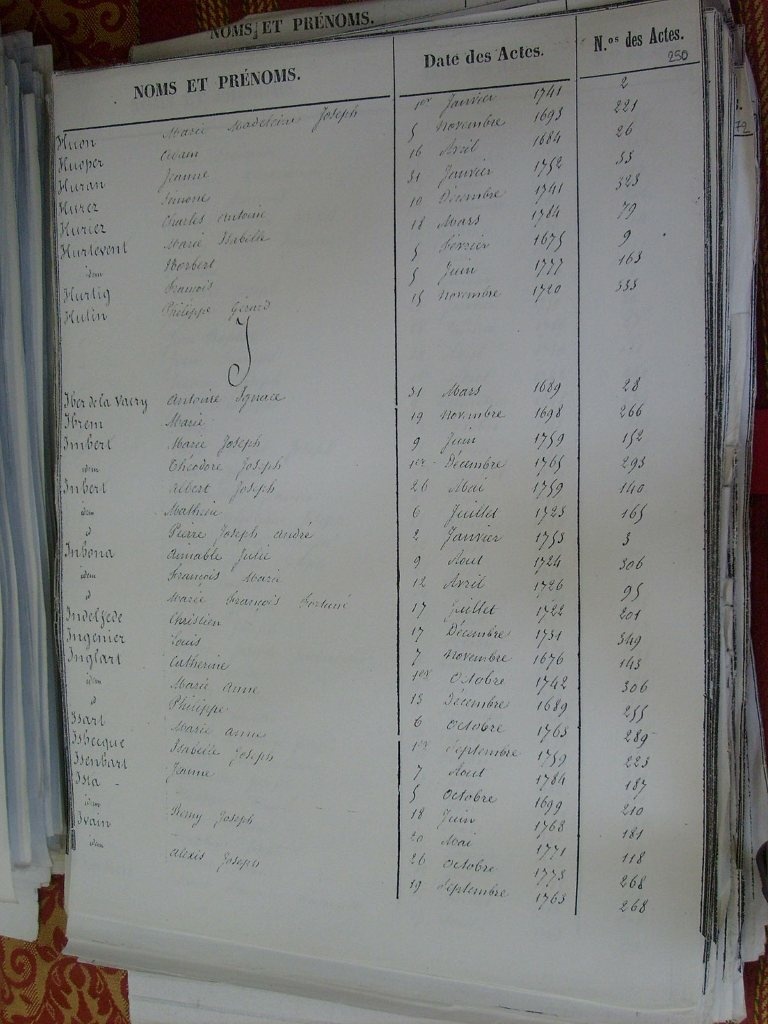 NOMS ET PRÉNOMS.
NOMS ET PRÉNOMS. Date des Actes. N.os des Actes.
250
72
Huon Marie Madeleine Joseph 1er Janvier 1741 2
Huoper 5 Novembre 1693 221
Huran Jeanne 16 Avril 1684 26
Hurez Simone 31 Janvier 1752 33
Huriez Charles Antoine 10 Décembre 1741 323
Hurtevent Marie Isabelle 18 Mars 1784 79
idem Norbert 5 Février 1675 9
Hurtig François 5 Juin 1777 163
Hutin Philippe Gérard 15 Novembre 1720 333
I
Iber de la Vacry Antoine Ignace 31 Mars 1689 28
Ibrem Marie 19 Novembre 1698 266
Imbert Marie Joseph 9 Juin 1759 152
idem Théodore Joseph 1er Décembre 1765 293
Inbert Albert Joseph 26 Mai 1759 140
idem Mathieu 6 Juillet 1723 165
d Pierre Joseph André 2 Janvier 1753 3
Inbona Aimable Julie 9 Aout 1724 306
idem François Marie 12 Avril 1726 95
d Marie François Fortuné 17 Juillet 1722 201
Indelfede Christien 17 Décembre 1731 349
Ingenier Louis 7 Novembre 1676 143
Inglart Catherine 1er Octobre 1742 306
idem Marie Anne 13 Décembre 1689 255
d Philippe 6 Octobre 1763 289
Isart Marie Anne 1er Septembre 1759 223
Isbecque Isabelle Joseph 7 Aout 1784 187
Isenbart Jeanne 5 Octobre 1699 210
Isra - 18 Juin 1768 181
idem 20 Mai 1771 118
Ivain Remy Joseph 26 Octobre 1773 268
idem Alexis Joseph 19 Septembre 1763 268